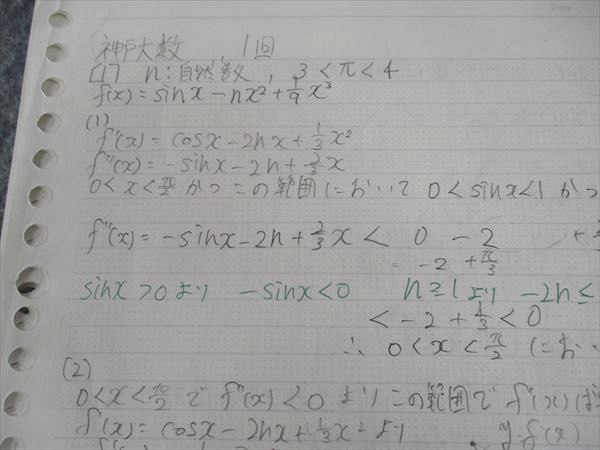 神戸大数 , 1回
[1] n:自然数 , 3<π<4
f(x)=sinx-nx²+1/9x³
(1)
f'(x)=cosx-2nx+1/3x²
f''(x)=-sinx-2n+2/3x
0<x<π/2 かつ この範囲において 0<sinx<1 かつ
f''(x)=-sinx-2n+2/3x< 0 -2
= -2 +π/3
sinx>0より -sinx<0 n≧1より -2n≤
<-2+4/3<0
∴ 0<x<π/2 にお
(2)
0<x<π/2で f''(x)<0 より この範囲で f'(x)は
f'(x)=cosx-2nx+1/3x²より y=f'(x)